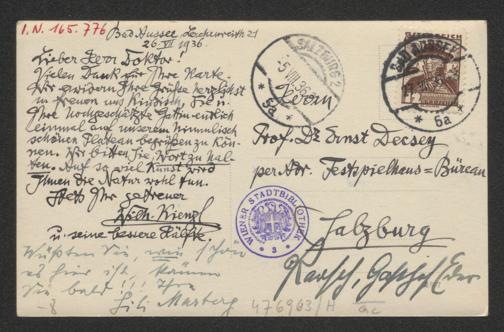 I.N. 165.776
Bad Aussee, Lerchenreith 21
26. VII 1936.
Lieber Herr Doktor!
Vielen Dank für Ihre Karte.
Wir erwidern Ihre Grüße herzlichst
u. freuen uns kindisch, Sie u.
Ihre Hochgeschätzte Gattin endlich
einmal auf unserem himmlisch
schönen Plateau begrüßen zu kön-
nen. Wir bitten Sie, Wort zu hal-
ten. Auf so viel Kunst wird
Ihnen die Natur wohl tun.
Stets Ihr getreuer
W. Kienzl
u. seine bessere Hälfte.
Wüßten Sie, wie schön
es hier ist, kämen
Sie bald!!! Ihre
SALZBURG 2
5 VIII 36
5a
Herrn
Prof. Dr Ernst Decsey
per Adr. Festspielhaus=Büreau
Salzburg
BAD AUSSEE
5a
ÖSTERREICH
WIENER STADTBIBLIOTHEK
3
476963/H